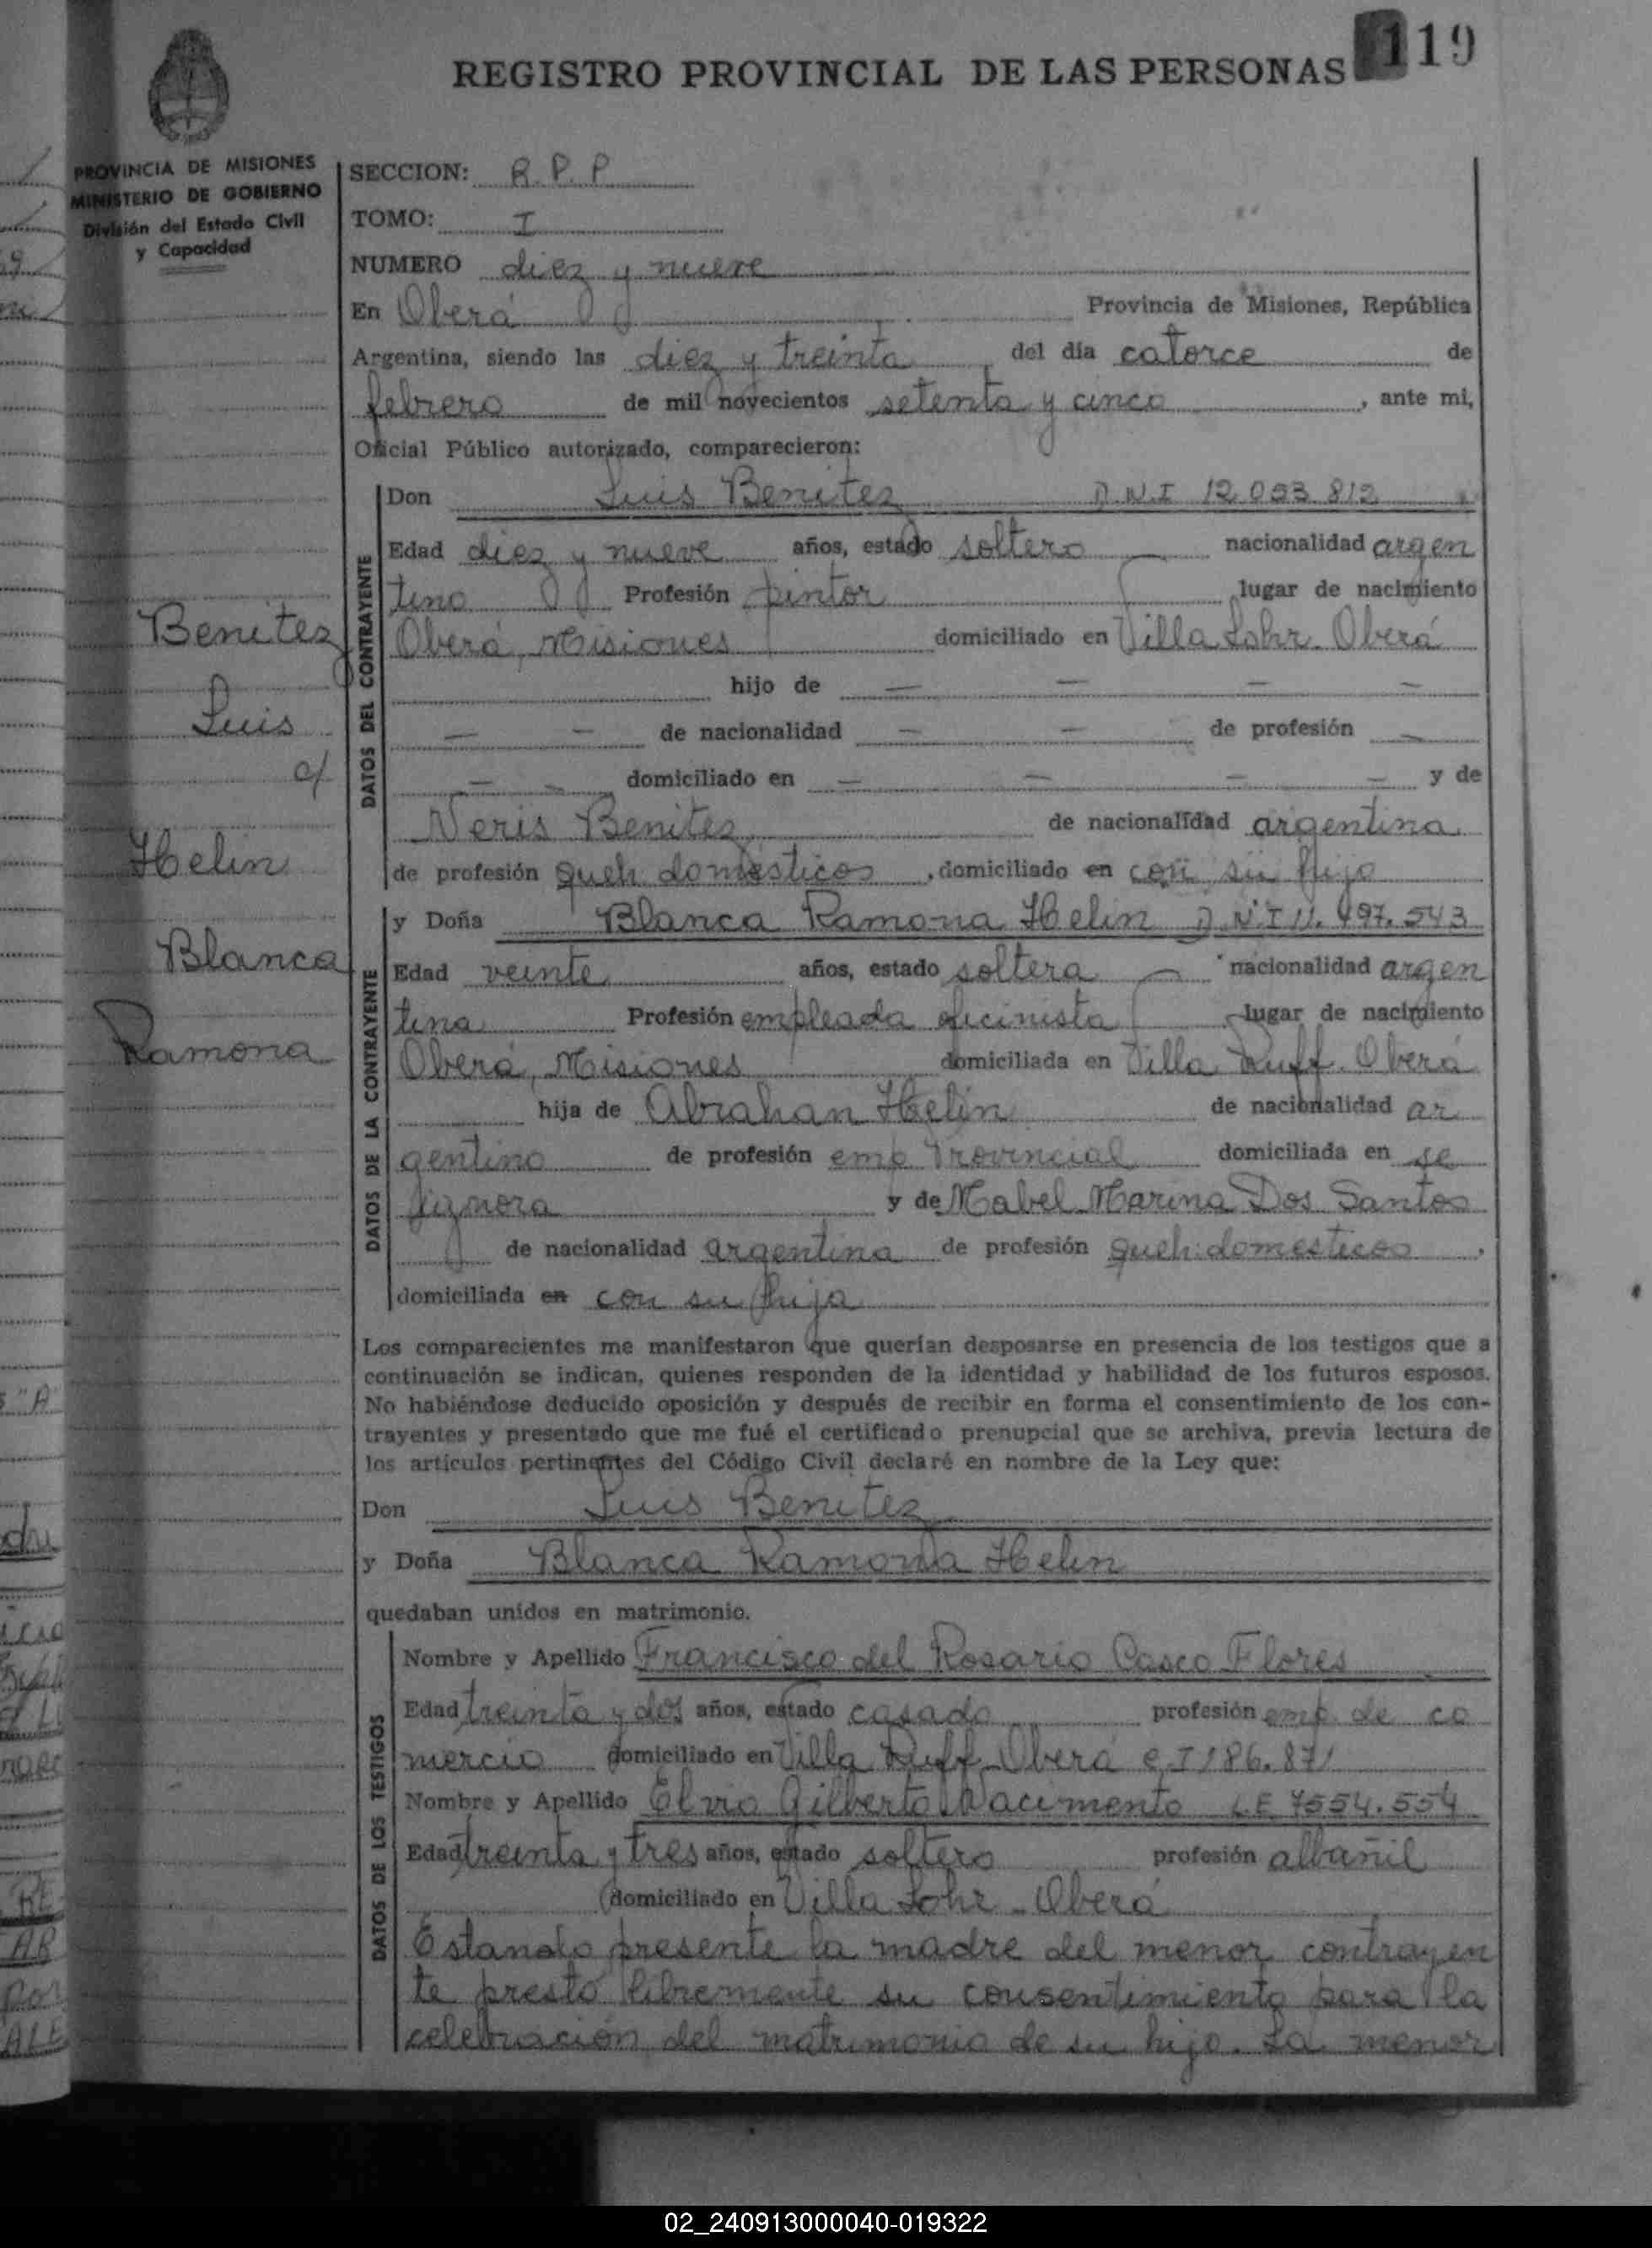 REGISTRO PROVINCIAL DE LAS PERSONAS
119
PROVINCIA DE MISIONES
MINISTERIO DE GOBIERNO
División del Estado Civil
y Capacidad
SECCION: R.P.P
TOMO: I
NUMERO diez y nueve
En Oberá Provincia de Misiones, República
Argentina, siendo las diez y treinta del día catorce de
febrero de mil novecientos setenta y cinco, ante mi,
Oficial Público autorizado, comparecieron:
Benitez
Luis
c/
Helin
Blanca
Ramona
DATOS DEL CONTRAYENTE
Don Luis Benitez D.N.I 12.093.812
Edad diez y nueve años, estado soltero nacionalidad argen
tino Profesión pintor lugar de nacimiento
Oberá, Misiones domiciliado en Villa Lohr. Oberá
hijo de — — — —
— — de nacionalidad — — de profesión —
— — domiciliado en — — — — y de
Neris Benitez de nacionalidad argentina
de profesión queh. domésticos, domiciliado en con su hijo
DATOS DE LA CONTRAYENTE
y Doña Blanca Ramona Helin D.N.I 11.497.543
Edad veinte años, estado soltera — nacionalidad argen
tina Profesión empleada oficinista lugar de nacimiento
Oberá, Misiones domiciliada en Villa Ruff. Oberá
hija de Abrahan Helin de nacionalidad ar
gentino de profesión emp. Provincial domiciliada en se
ignora y de Mabel Marina Dos Santos
de nacionalidad argentina de profesión queh. domesticos,
domiciliada en con su hija
Los comparecientes me manifestaron que querían desposarse en presencia de los testigos que a
continuación se indican, quienes responden de la identidad y habilidad de los futuros esposos.
No habiéndose deducido oposición y después de recibir en forma el consentimiento de los con-
trayentes y presentado que me fué el certificado prenupcial que se archiva, previa lectura de
los artículos pertinentes del Código Civil declaré en nombre de la Ley que:
Don Luis Benitez
y Doña Blanca Ramona Helin
quedaban unidos en matrimonio.
DATOS DE LOS TESTIGOS
Nombre y Apellido Francisco del Rosario Casco Flores
Edad treinta y dos años, estado casado profesión emp. de co
mercio domiciliado en Villa Ruff - Oberá C.I 186.871
Nombre y Apellido Elvio Gilberto Nacimento L.E 7554.554
Edad treinta y tres años, estado soltero profesión albañil
domiciliado en Villa Lohr - Oberá
Estando presente la madre del menor contrayen
te prestó libremente su consentimiento para la
celebración del matrimonio de su hijo. La menor
02_240913000040-019322